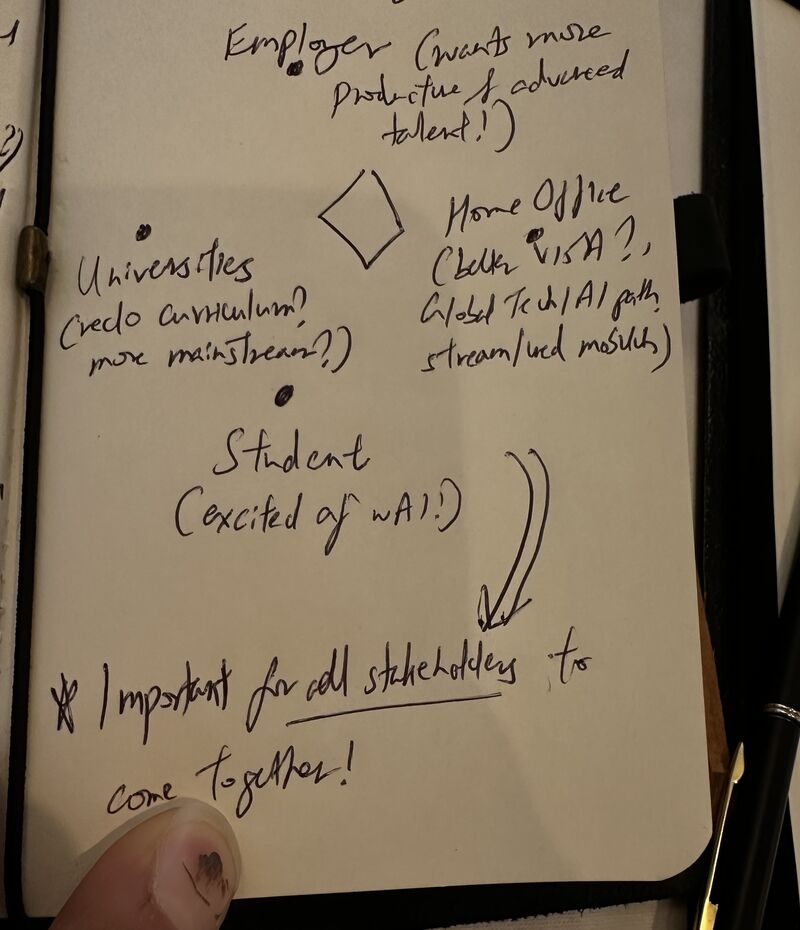 2)
Employer (wants more
productive & advanced
talent!)
Home Office
(better VISA?,
Global Tech/AI path,
streamlined mobility)
Universities
(redo curriculum?
more mainstream?)
Student
(excited of wAI!)
* Important for all stakeholders to
come together!